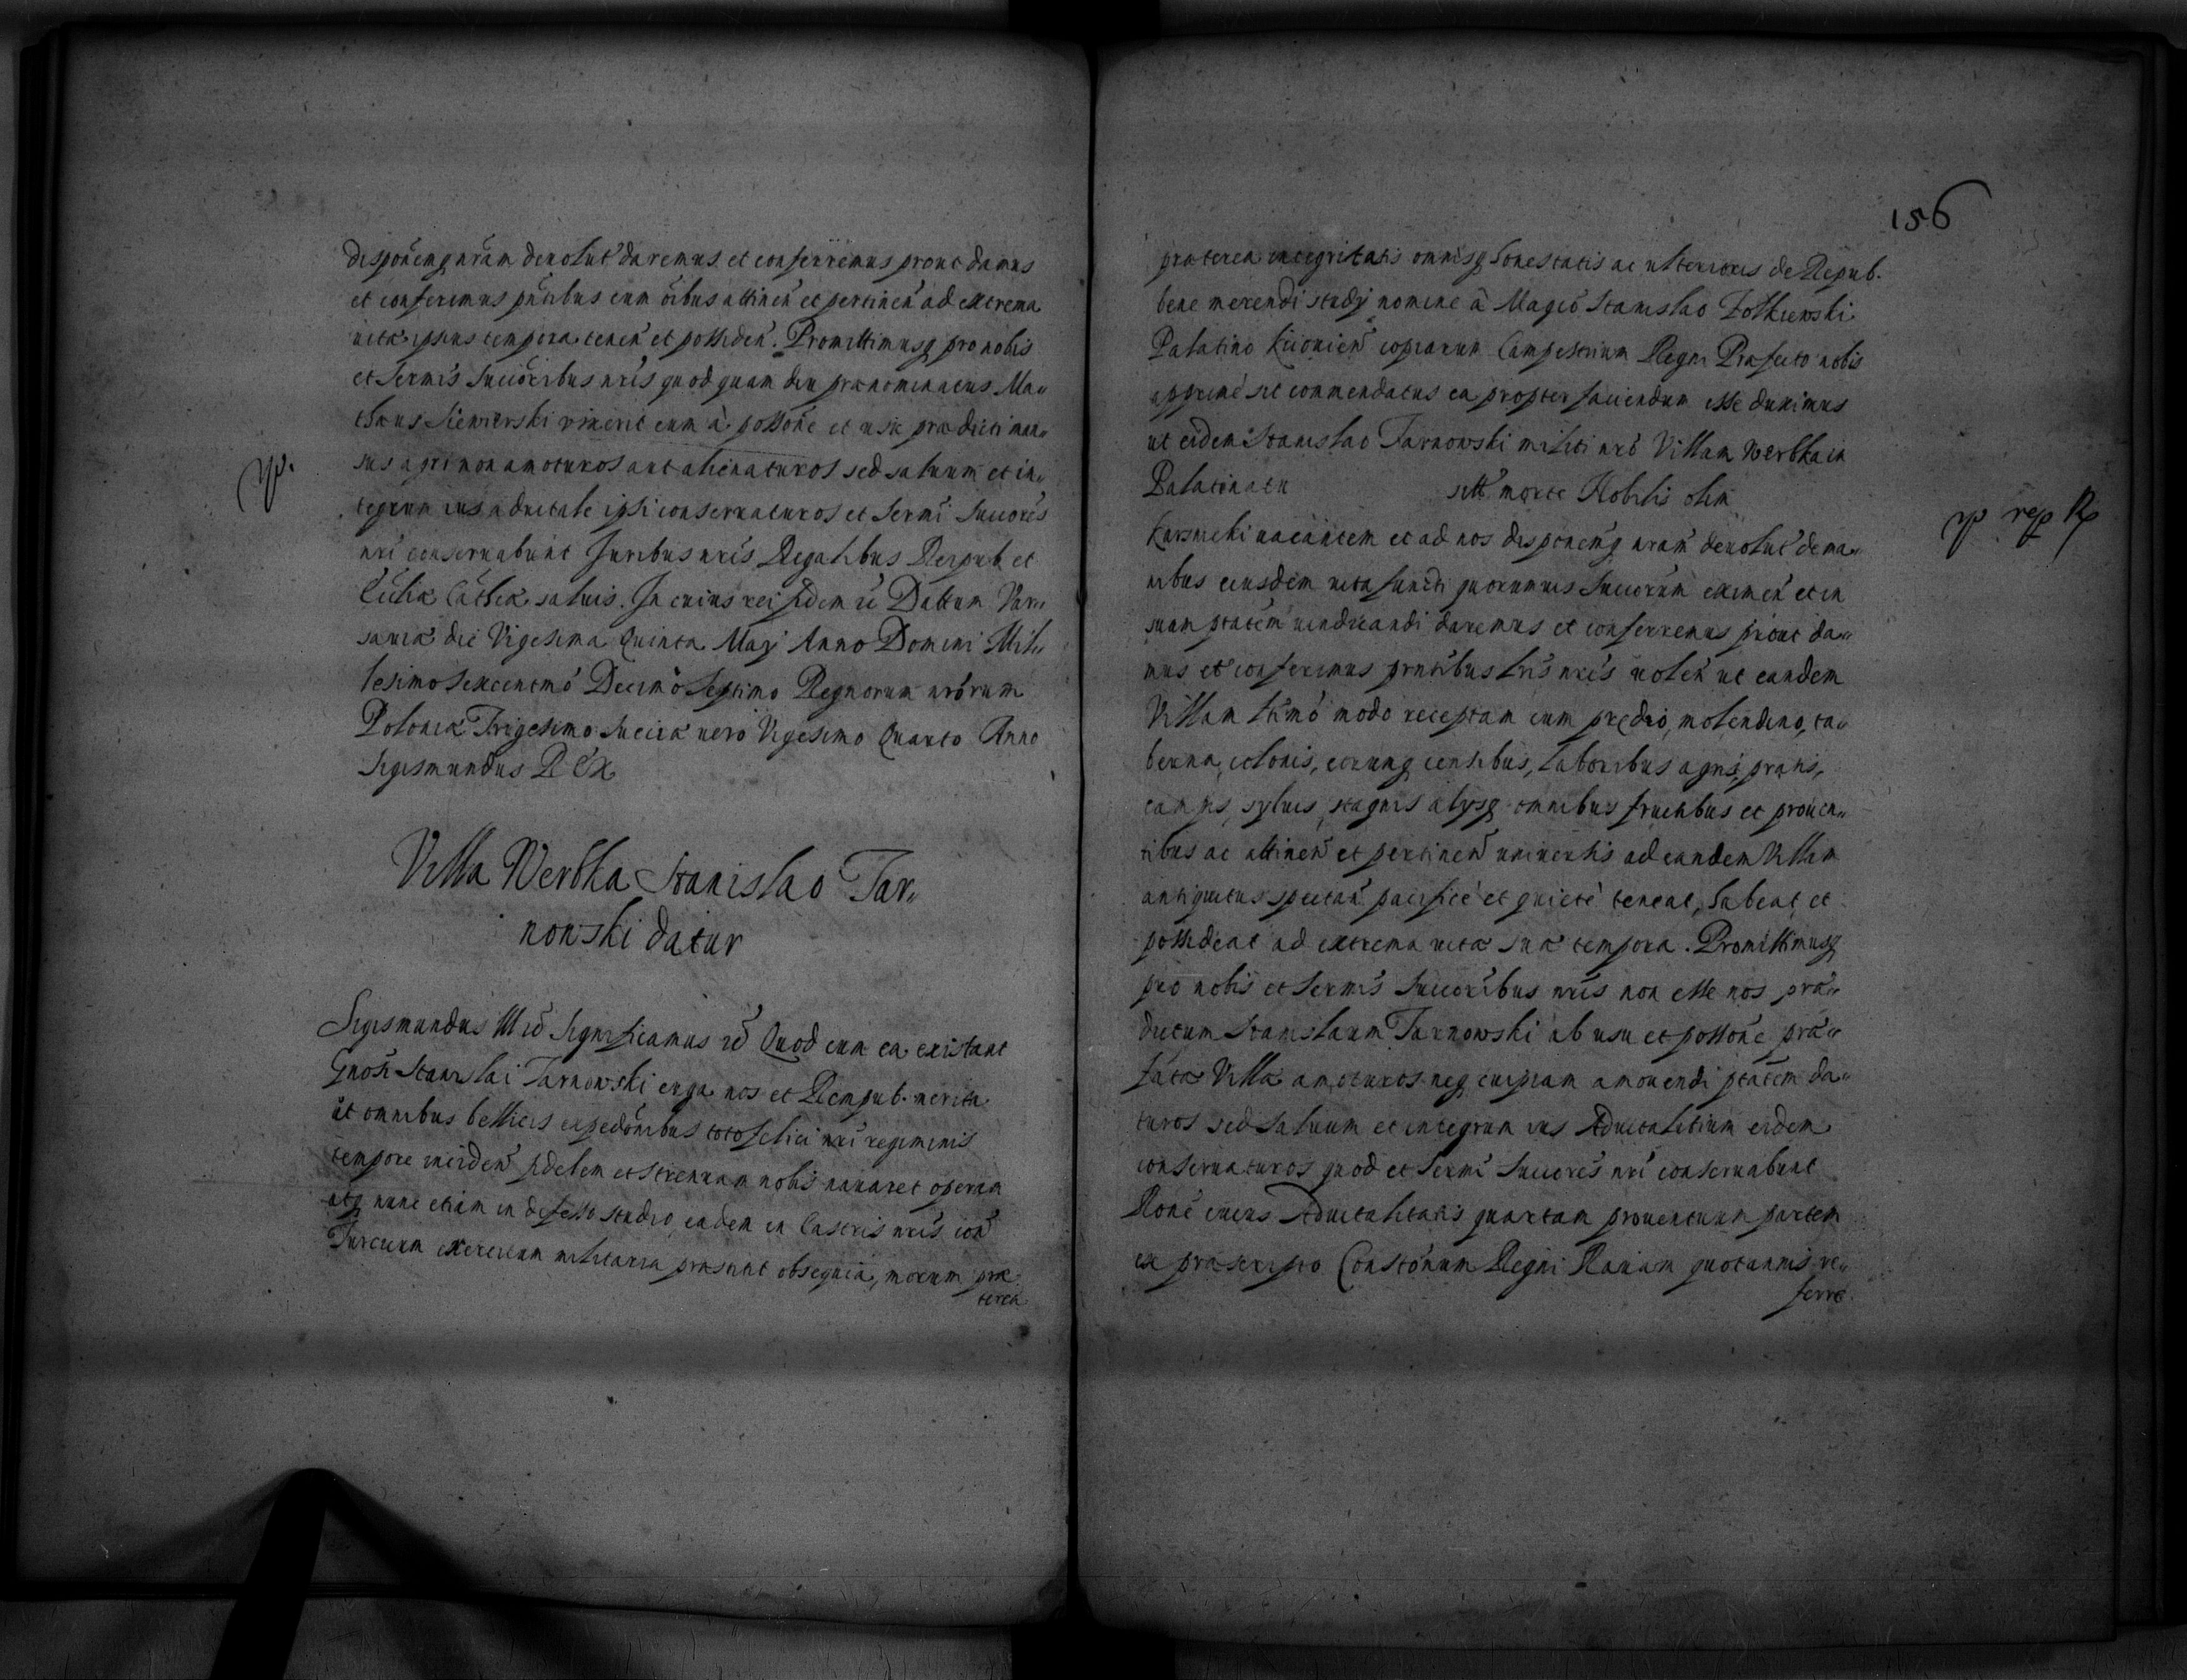 disponēmq̃ nr̃am deuolut̃ daremus et conferremus prout damus
et conferimus pñtibus cum õibus attineñ et pertineñ ad extrema
uitæ ipsius tempora teneñ et possideñ. Promittimusq̃ pro nobis
et Sermis Succõribus nr̃is quod quam diu prænominatus Ma„
thæus Siewierski vixerit eum à possõne et usu prædicti man„
sus agri non amoturos aut alienaturos sed saluum et in„
tegrum ius aduitale ipsi conseruaturos et Sermi Succores
nri conseruabunt Juribus nris Regalibus Reipub. et
Ecclæ Cathcæ saluis. In cuius rei fidem rẽ Dattum Var„
sauiæ die Vigesima Quinta Maij Anno Domini Mil„
lesimo Sexcentmõ Decimo Septimo Regnorum nrõrum
Poloniæ Trigesimo Sueciæ uero Vigesimo Quarto Anno
Sigismundus REX
Villa Werbka Stanislao Tar„
nowski datur
Sigismundus III rẽ Significamus rẽ Quod cum ea existant
Gnosi Stanislai Tarnowski erga nos et Rempub. merita
ut omnibus bellicis expedõnibus toto felici nri regiminis
tempore fidelem et strenuam nobis nauaret operam
atq̃ nunc etiam indefesso studio, eadem in Castris nris con̄
Turcum exercitum militaria præstant obsequia, morum præ
terea
156
præterea integritatis omnisq̃ honestatis ac ulterioris de Repub.
bene merendi studij nomine à Magco Stanislao Zolkiewski
Palatino Kiiouieñ copiarum Campestrium Regni Præfecto nobis
apprime sit commendatus ea propter faciendum esse duximus
ut eidem Stanislao Tarnowski militi nrõ Villam Werbka in
Palatinatu sitt̃ morte Nobilis olim
Karsnicki uacantem et ad nos disponẽmq̃ nram deuolut̃ de ma„
nibus eiusdem uita functi quorumuis Succorum eximeñ et in
suam ptãtem uendicandi daremus et conferremus prout da„
mus et conferimus prntibus lris nris uoleñ ut eandem
Villam ltimõ modo receptam cum prędio, molendino, ta„
berna, colonis, eorumq̃ censibus, laboribus agris, pratis,
campis, syluis, stagnis alijsq̃ omnibus fructibus et prouen„
tibus ac attineñ et pertineñ uniuersis ad eandem Villam
antiquitus spectañ pacifice et quiete teneat, habeat et
possideat ad extrema uitæ suæ tempora. Promittimusq̃
pro nobis et Sermis Succoribus nris non esse nos præ„
dictum Stanislaum Tarnowski ab usu et possõne præ„
fatæ Villæ amoturos neq̃ cuipiam amouendi ptãtem da„
turos sed saluum et integrum ius Aduitalitium eidem
conseruaturos quod et Sermi Succores nri conseruabunt
Rone cuius Aduitalitatis quartam prouentuum partem
ex præscripto Constonum Regni Rauam quotannis re„
ferre